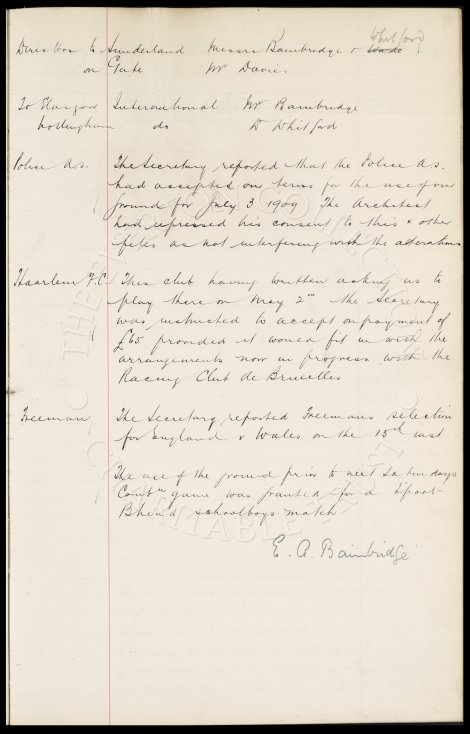 Whitford
Directors to Sunderland Messrs Bainbridge & Wade
on Gate Mr Davies
To Glasgow International Mr Bainbridge
Nottingham do Dr Whitford
Police A.S. The Secretary reported that the Police A.S.
had accepted our terms for the use of our
ground for July 3 1909 The Architect
had expressed his consent to this & other
fetes as not interfering with the alterations
Haarlem F.C. This club having written asking us to
play there on May 2nd the Secretary
was instructed to accept on payment of
£65 provided it would fit in with the
arrangements now in progress with the
Racing Club de Bruxelles
Freeman The Secretary reported Freemans selection
for England v Wales on the 15th inst
The use of the ground prior to next Saturdays
Combtn game was granted for a
schoolboys match
E. A. Bainbridge